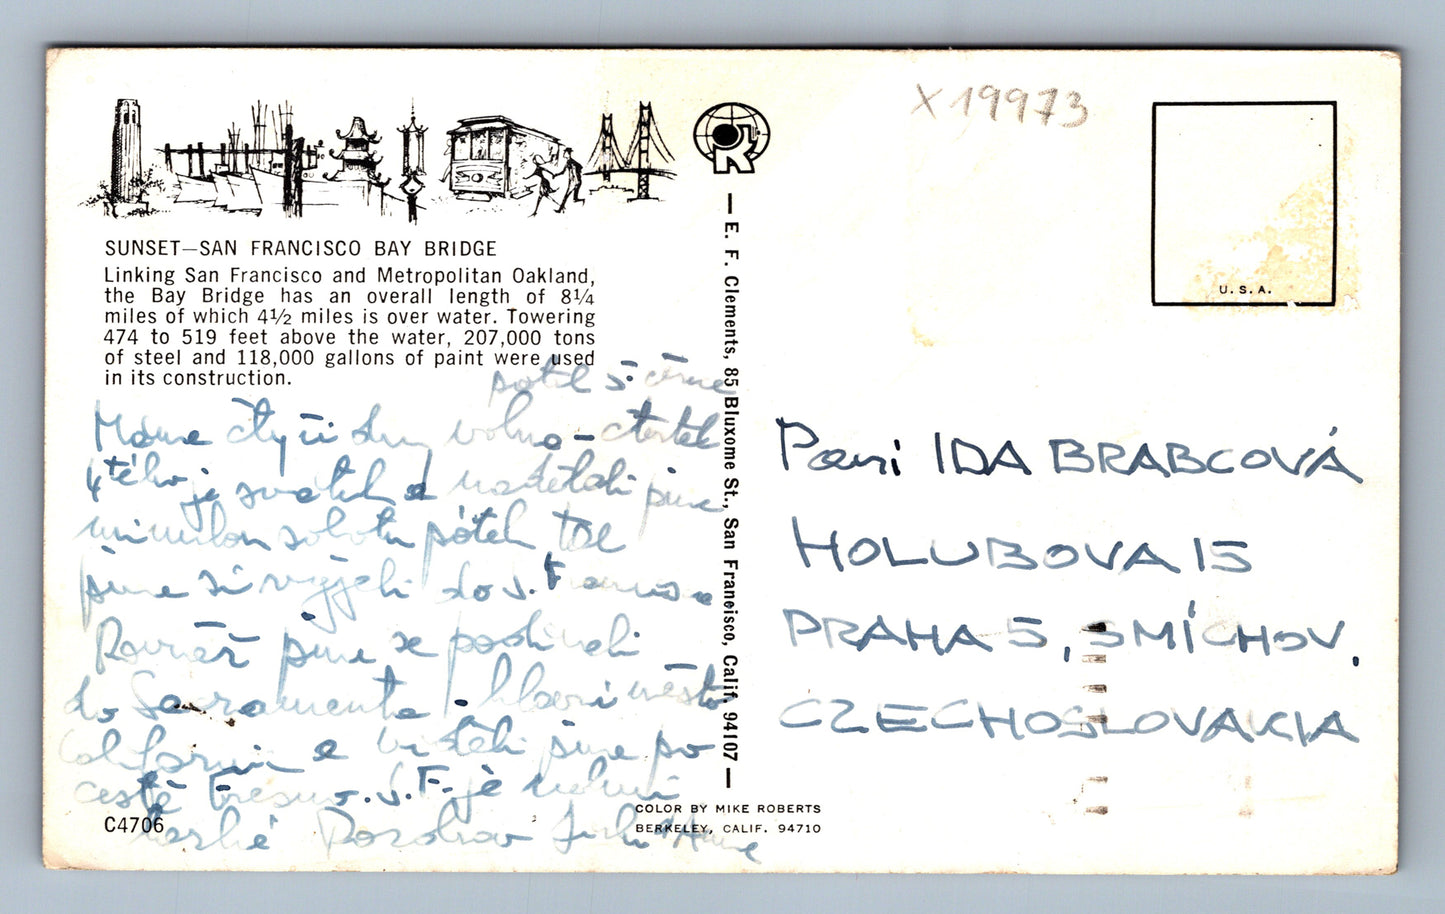 X 19973
U.S.A.
SUNSET—SAN FRANCISCO BAY BRIDGE
Linking San Francisco and Metropolitan Oakland,
the Bay Bridge has an overall length of 8¼
miles of which 4½ miles is over water. Towering
474 to 519 feet above the water, 207,000 tons
of steel and 118,000 gallons of paint were used
in its construction.
pátek 5. června
Máme čtyři dny volno – čtvrtek
4tého je svátek a nadělali jsme
minulou sobotu pátek tak
jsme si vyjeli do S. Francisca
Rovněž jsme se podívali
do Sacramenta. hlavní město
California a viděli jsme po
cestě Fresno. S.F. je velmi
hezké Pozdrav Anna
C4706
E. F. Clements, 85 Bluxome St., San Francisco, Calif. 94107
COLOR BY MIKE ROBERTS
BERKELEY, CALIF. 94710
Paní IDA BRABCOVÁ
HOLUBOVA 15
PRAHA 5, SMÍCHOV.
CZECHOSLOVAKIA